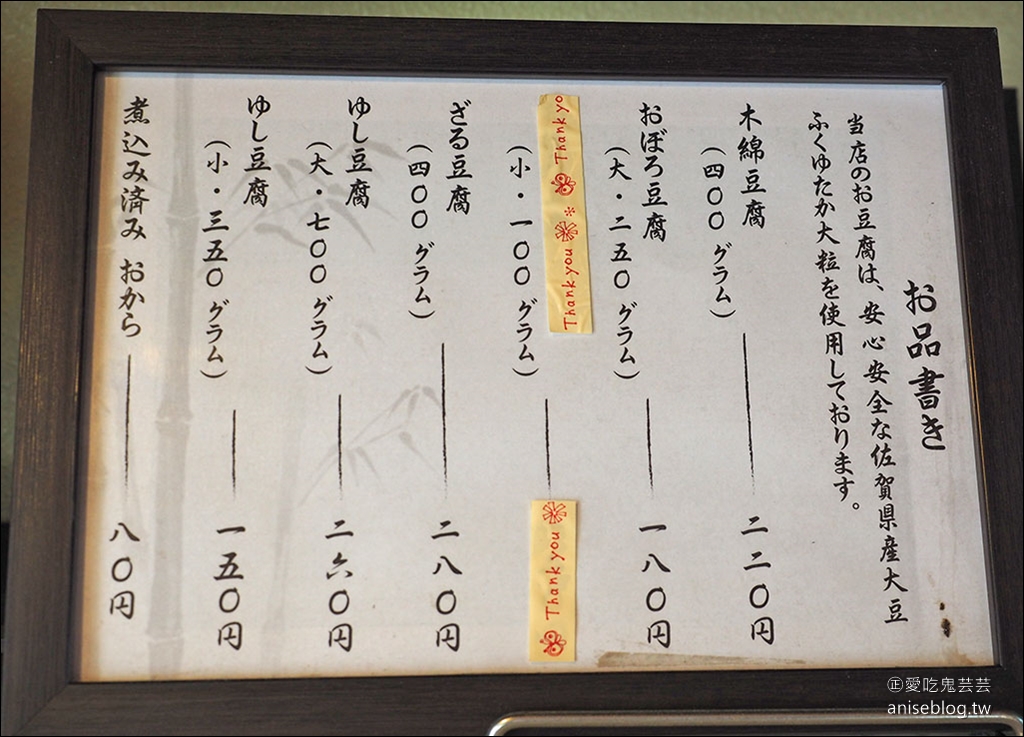 お品書き
当店のお豆腐は、安心安全な佐賀県産大豆
ふくゆたか大粒を使用しております。
木綿豆腐
(四〇〇グラム)
二二〇円
おぼろ豆腐
(大・二五〇グラム)
一八〇円
Thank yo
Thank you
(小・一〇〇グラム)
Thank you
ざる豆腐
(四〇〇グラム)
二八〇円
ゆし豆腐
(大・七〇〇グラム)
二六〇円
ゆし豆腐
(小・三五〇グラム)
一五〇円
煮込み済み おから
八〇円
㊣愛吃鬼芸芸
aniseblog.tw